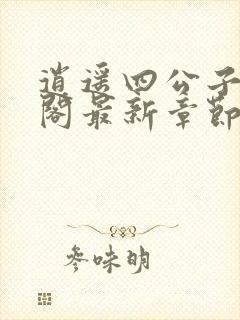 逍遥四公子
阁最新章节
参味明